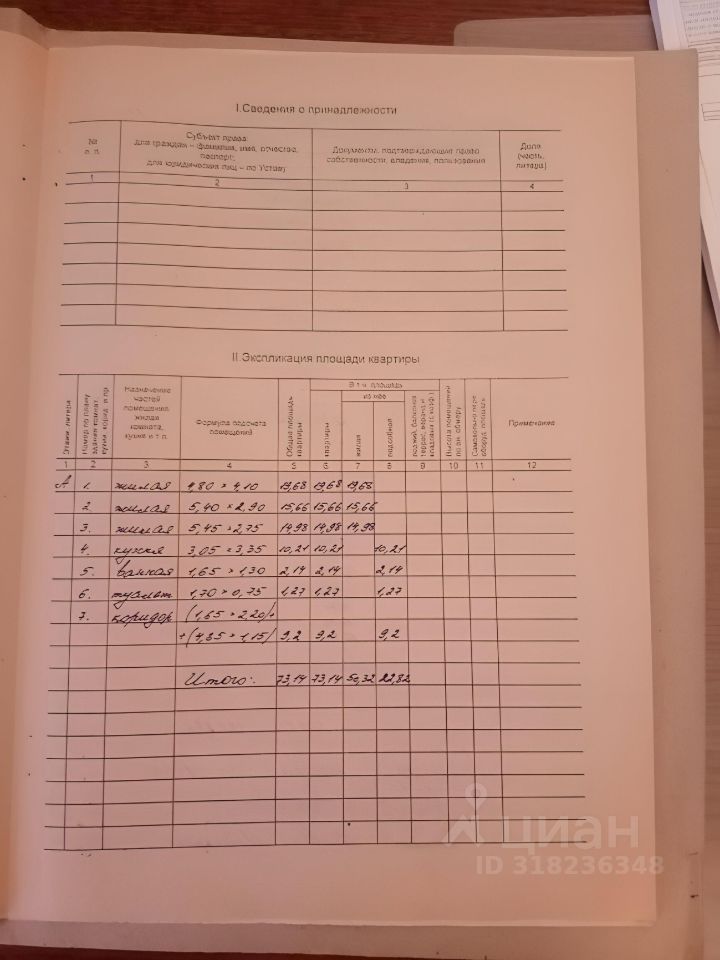 I.Сведения о принадлежности
№ п.п.
Субъект права:
для граждан – фамилия, имя, отчество,
паспорт;
для юридических лиц – по Уставу
Документы, подтверждающие право
собственности, владения, пользования
Доля
(часть,
литера)
1 2 3 4
II.Экспликация площади квартиры
Этажи, литера
Номер по плану
здания комнат,
кухни, корид. и пр
Назначение
частей
помещения:
жилая
комната,
кухня и т.п.
Формула подсчета
помещений
Общая площадь
квартиры
В т.ч. площадь
квартиры
из нее
жилая
подсобная
лоджий, балконов
террас, веранд и
кладовых (с коэф.)
Высота помещений
по вн. обмеру
Самовольно пере
оборуд. площадь
Примечание
1 2 3 4 5 6 7 8 9 10 11 12
А 1. жилая 4,80 × 4,10 19,68 19,68 19,68
2. жилая 5,40 × 2,90 15,66 15,66 15,66
3. жилая 5,45 × 2,75 14,98 14,98 14,98
4. кухня 3,05 × 3,35 10,21 10,21 10,21
5. ванная 1,65 × 1,30 2,14 2,14 2,14
6. туалет 1,70 × 0,75 1,27 1,27 1,27
7. коридор (1,65 × 2,20)+
+(4,85 × 1,15) 9,2 9,2 9,2
Итого: 73,14 73,14 50,32 22,82
циан
ID 318236348